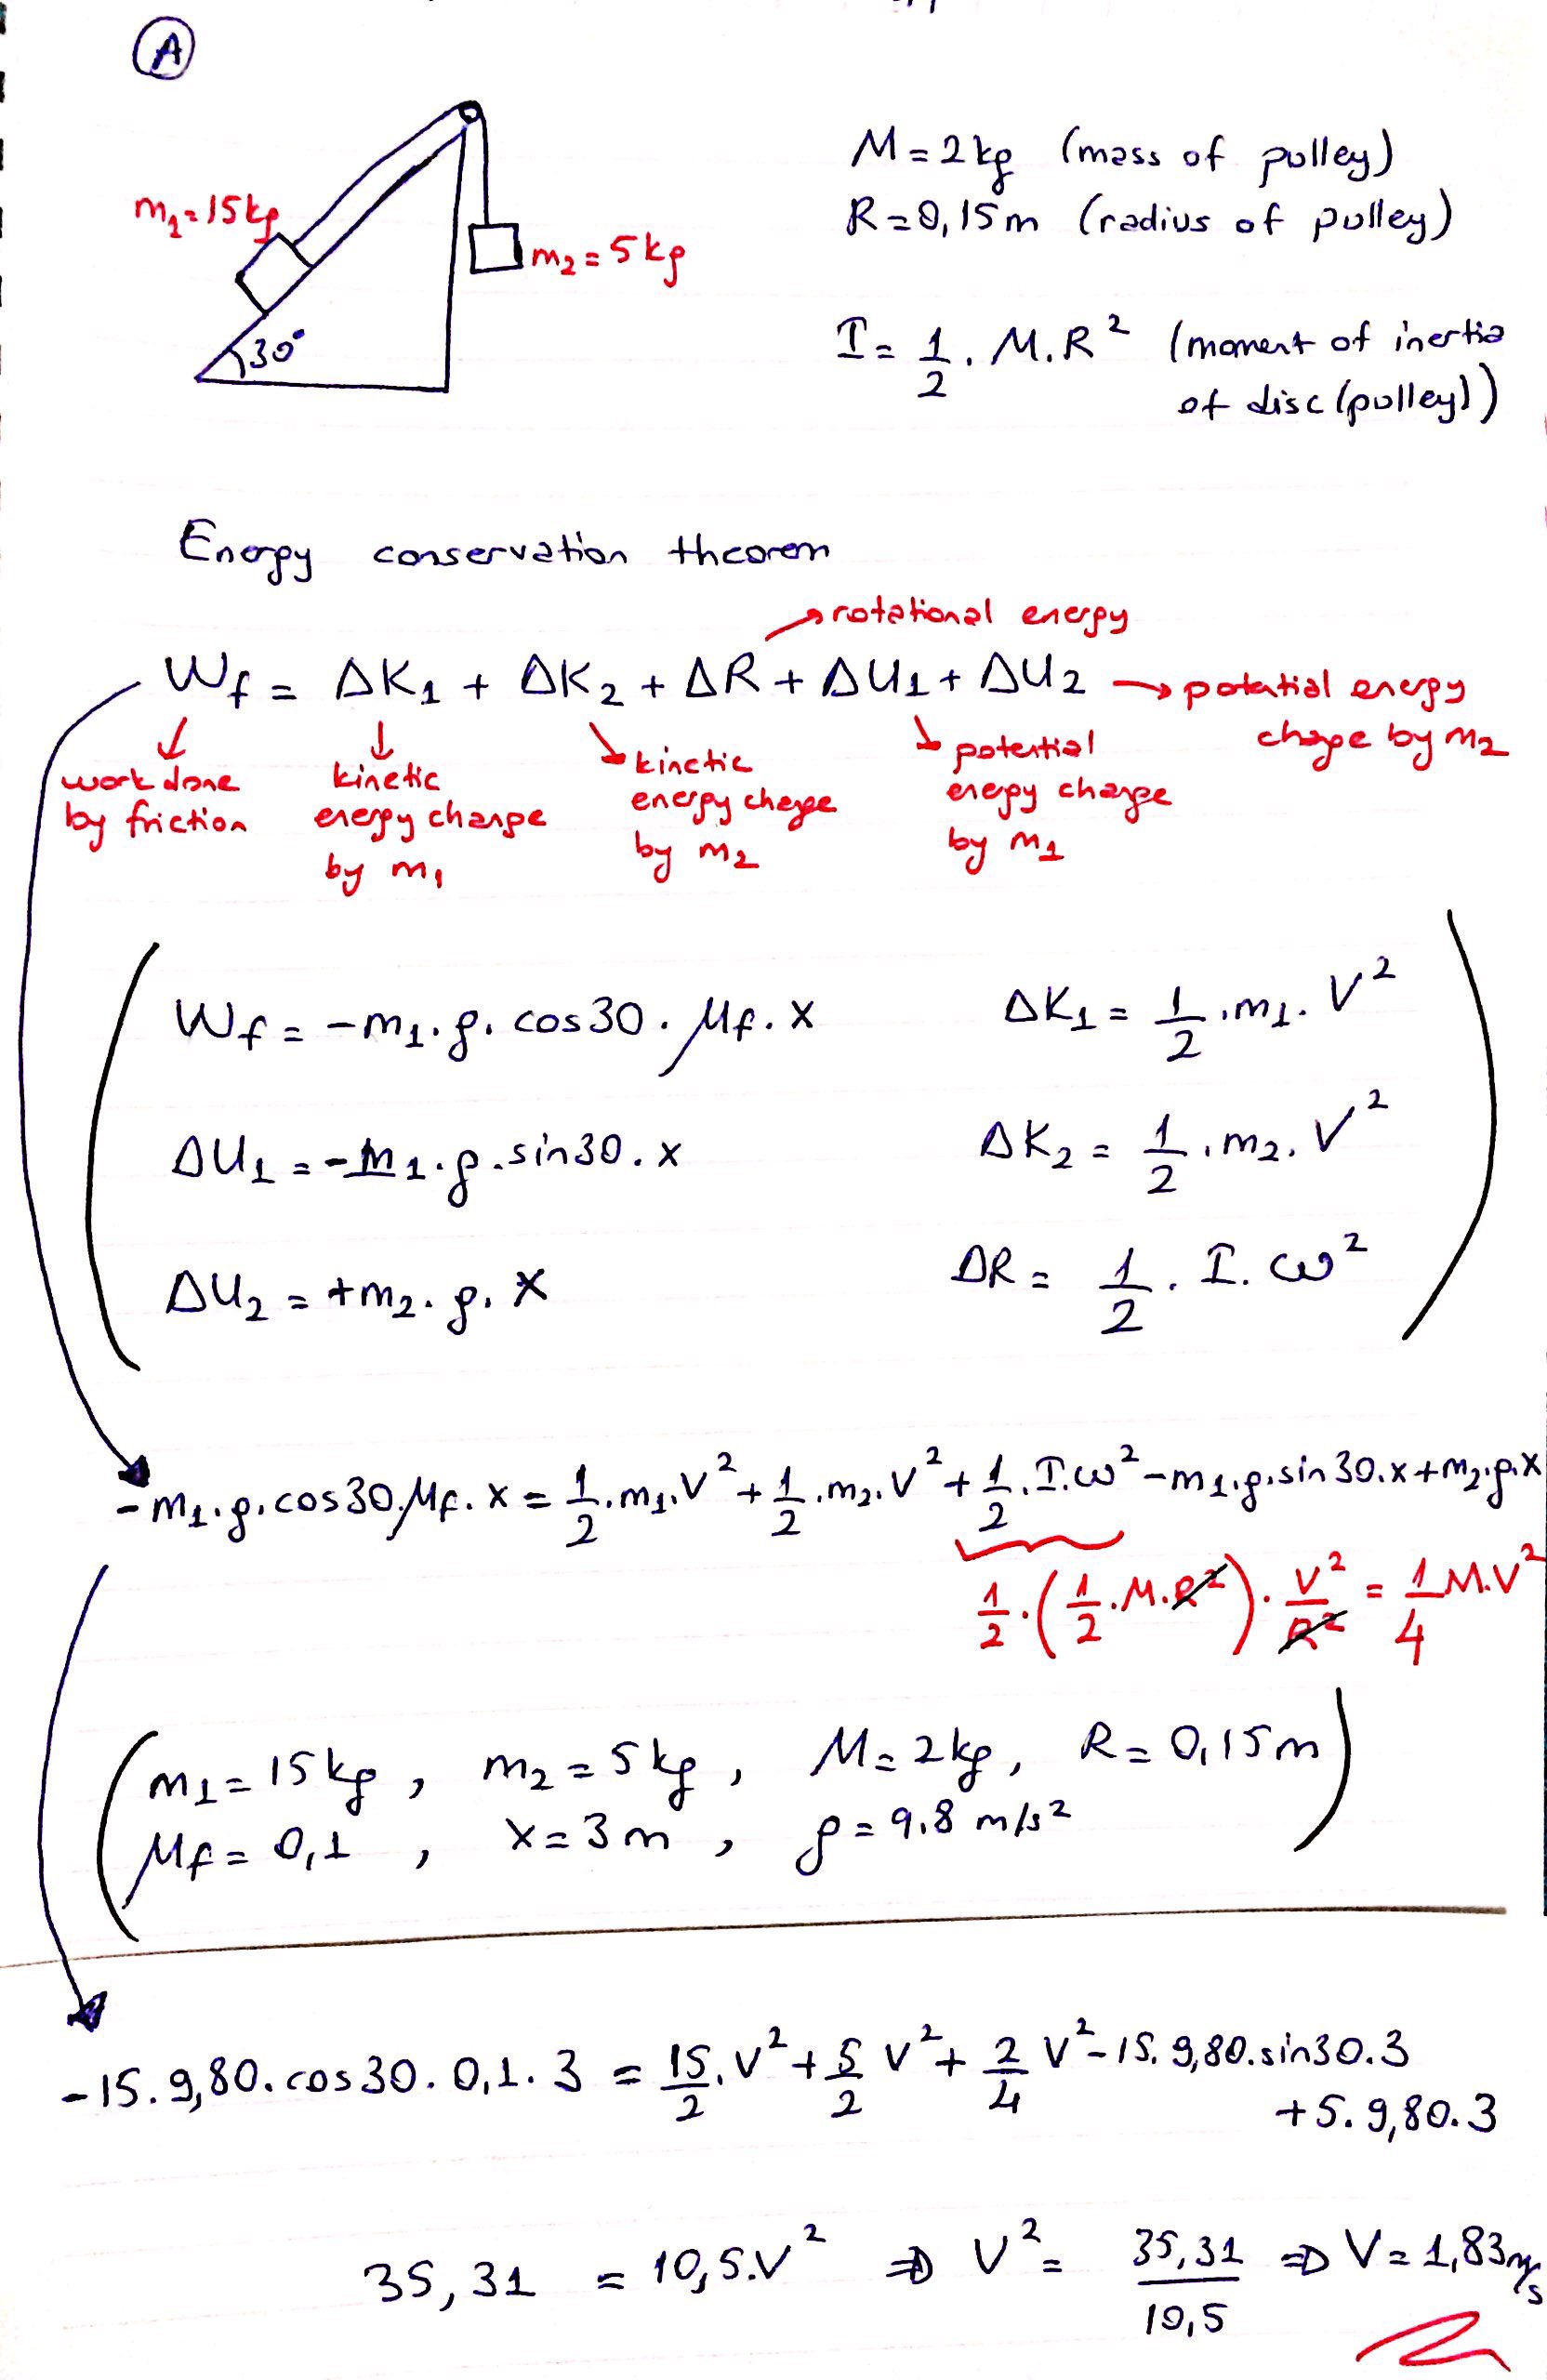 A
M = 2 kg (mass of pulley)
m1 = 15 kg
R = 0,15 m (radius of pulley)
m2 = 5 kg
I = 1/2 . M.R² (moment of inertia
of disc (pulley))
30°
Energy conservation theorem
→ rotational energy
Wf = ΔK1 + ΔK2 + ΔR + ΔU1 + ΔU2 → potential energy
change by m2
work done
by friction
kinetic
energy change
by m1
kinetic
energy change
by m2
potential
energy change
by m1
Wf = -m1.g.cos30.μf.x ΔK1 = 1/2.m1.V²
ΔU1 = -m1.g.sin30.x ΔK2 = 1/2.m2.V²
ΔU2 = +m2.g.x ΔR = 1/2.I.ω²
-m1.g.cos30.μf.x = 1/2.m1.V² + 1/2.m2.V² + 1/2.I.ω² - m1.g.sin30.x + m2.g.x
1/2.(1/2.M.R²).V²/R² = 1/4 M.V²
(m1 = 15 kg, m2 = 5 kg, M = 2 kg, R = 0,15 m)
μf = 0,1, x = 3 m, g = 9.8 m/s²
-15.9,80.cos30.0,1.3 = 15/2.V² + 5/2 V² + 2/4 V² - 15.9,80.sin30.3
+5.9,80.3
35,31 = 10,5.V² ⇒ V² = 35,31/10,5 ⇒ V = 1,83 m/s